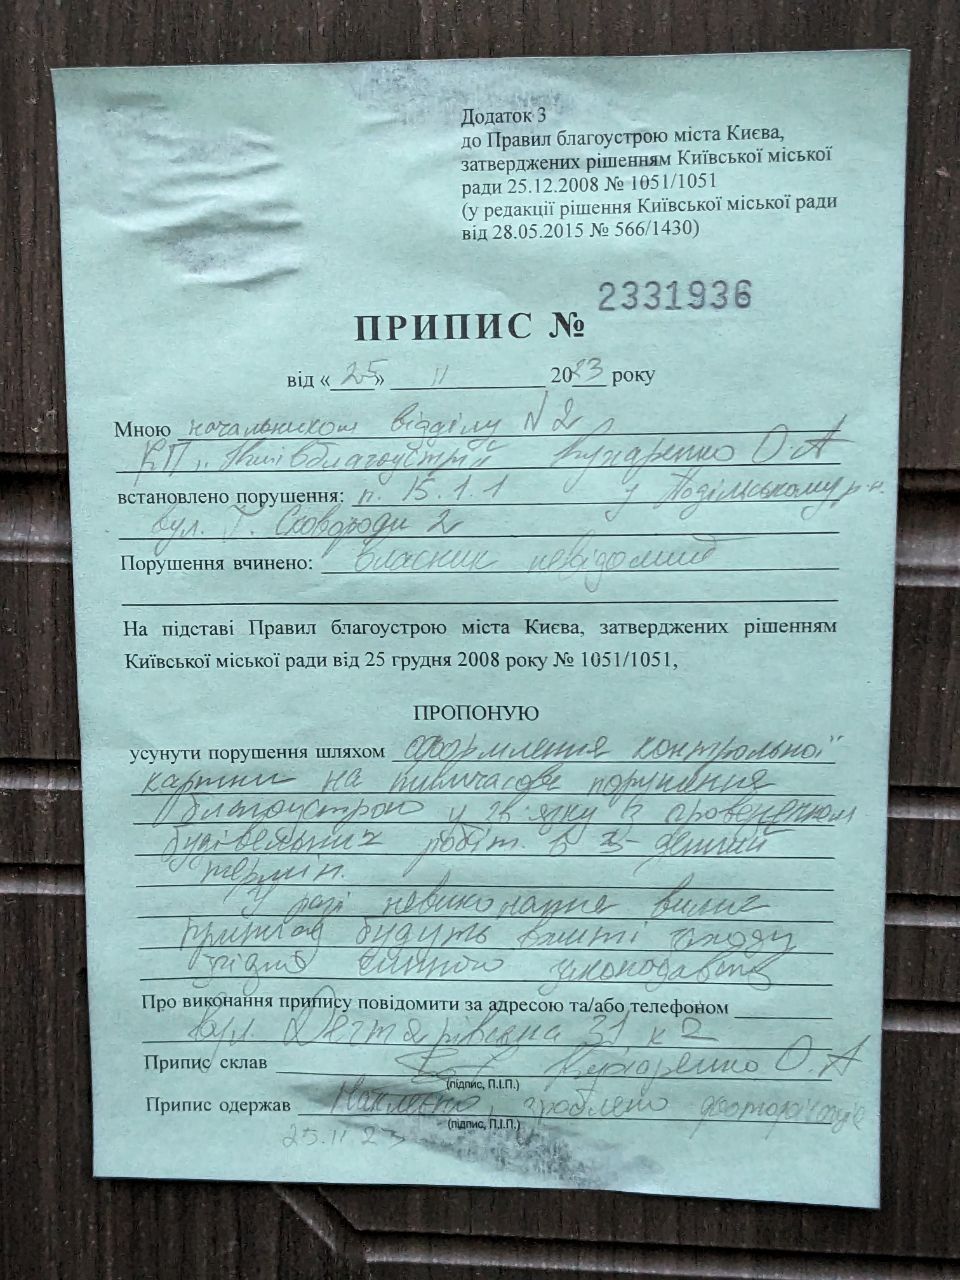 Додаток 3
до Правил благоустрою міста Києва,
затверджених рішенням Київської міської
ради 25.12.2008 № 1051/1051
(у редакції рішення Київської міської ради
від 28.05.2015 № 566/1430)
ПРИПИС № 2331936
від «25» 11 2023 року
Мною начальником відділу №2
КП "Київблагоустрій О.А
встановлено порушення: п. 15.1.1 у Подільському р-н.
вул. Г. Сковороди 2
Порушення вчинено: власник невідомий
На підставі Правил благоустрою міста Києва, затверджених рішенням
Київської міської ради від 25 грудня 2008 року № 1051/1051,
ПРОПОНУЮ
усунути порушення шляхом оформлення контрольної
картки на тимчасове порушення
благоустрою у зв'язку з проведенням
будівельних робіт. в 3-денний
термін.
У разі невиконання вимог
припису будуть вжиті заходи
згідно чинного законодавства
Про виконання припису повідомити за адресою та/або телефоном
вул. Дегтярівська 31 к 2
Припис склав О.А
(підпис, П.І.П.)
Припис одержав Наклеєно, зроблено фото
(підпис, П.І.П.)
25.11.23